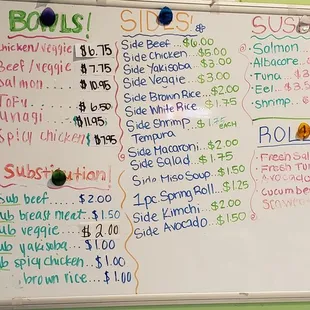 BOWLS!
chicken/veggie $6.75
Beef/veggie $7.75
salmon ... $10.95
Tofu $6.50
unagi $11.95
spicy chicken $7.95
Substitution!
sub beef......$2.00
sub breast meat.$1.50
sub veggie ... $2.00
sub yakisoba...$1.00
sub spicy chicken..$1.00
brown rice...$1.00
SIDES!
Side Beef...$6.00
Side Chicken...$5.00
Side Yakisoba...$3.00
Side Veggie...$3.00
Side Brown Rice...$2.00
Side White Rice...$1.75
Side Shrimp...$1.75
Tempura EACH
Side Macaroni...$2.00
Side Salad...$1.75
Side Miso Soup...$1.50
1pc. Spring Roll...$1.25
Side Kimchi...$2.00
Side Avocado...$1.50
SUS
Salmon
Albacore
Tuna $3
Eel...$3.5
shrimp
ROL
Fresh Sal
Fresh
Avocado
Cucumbe